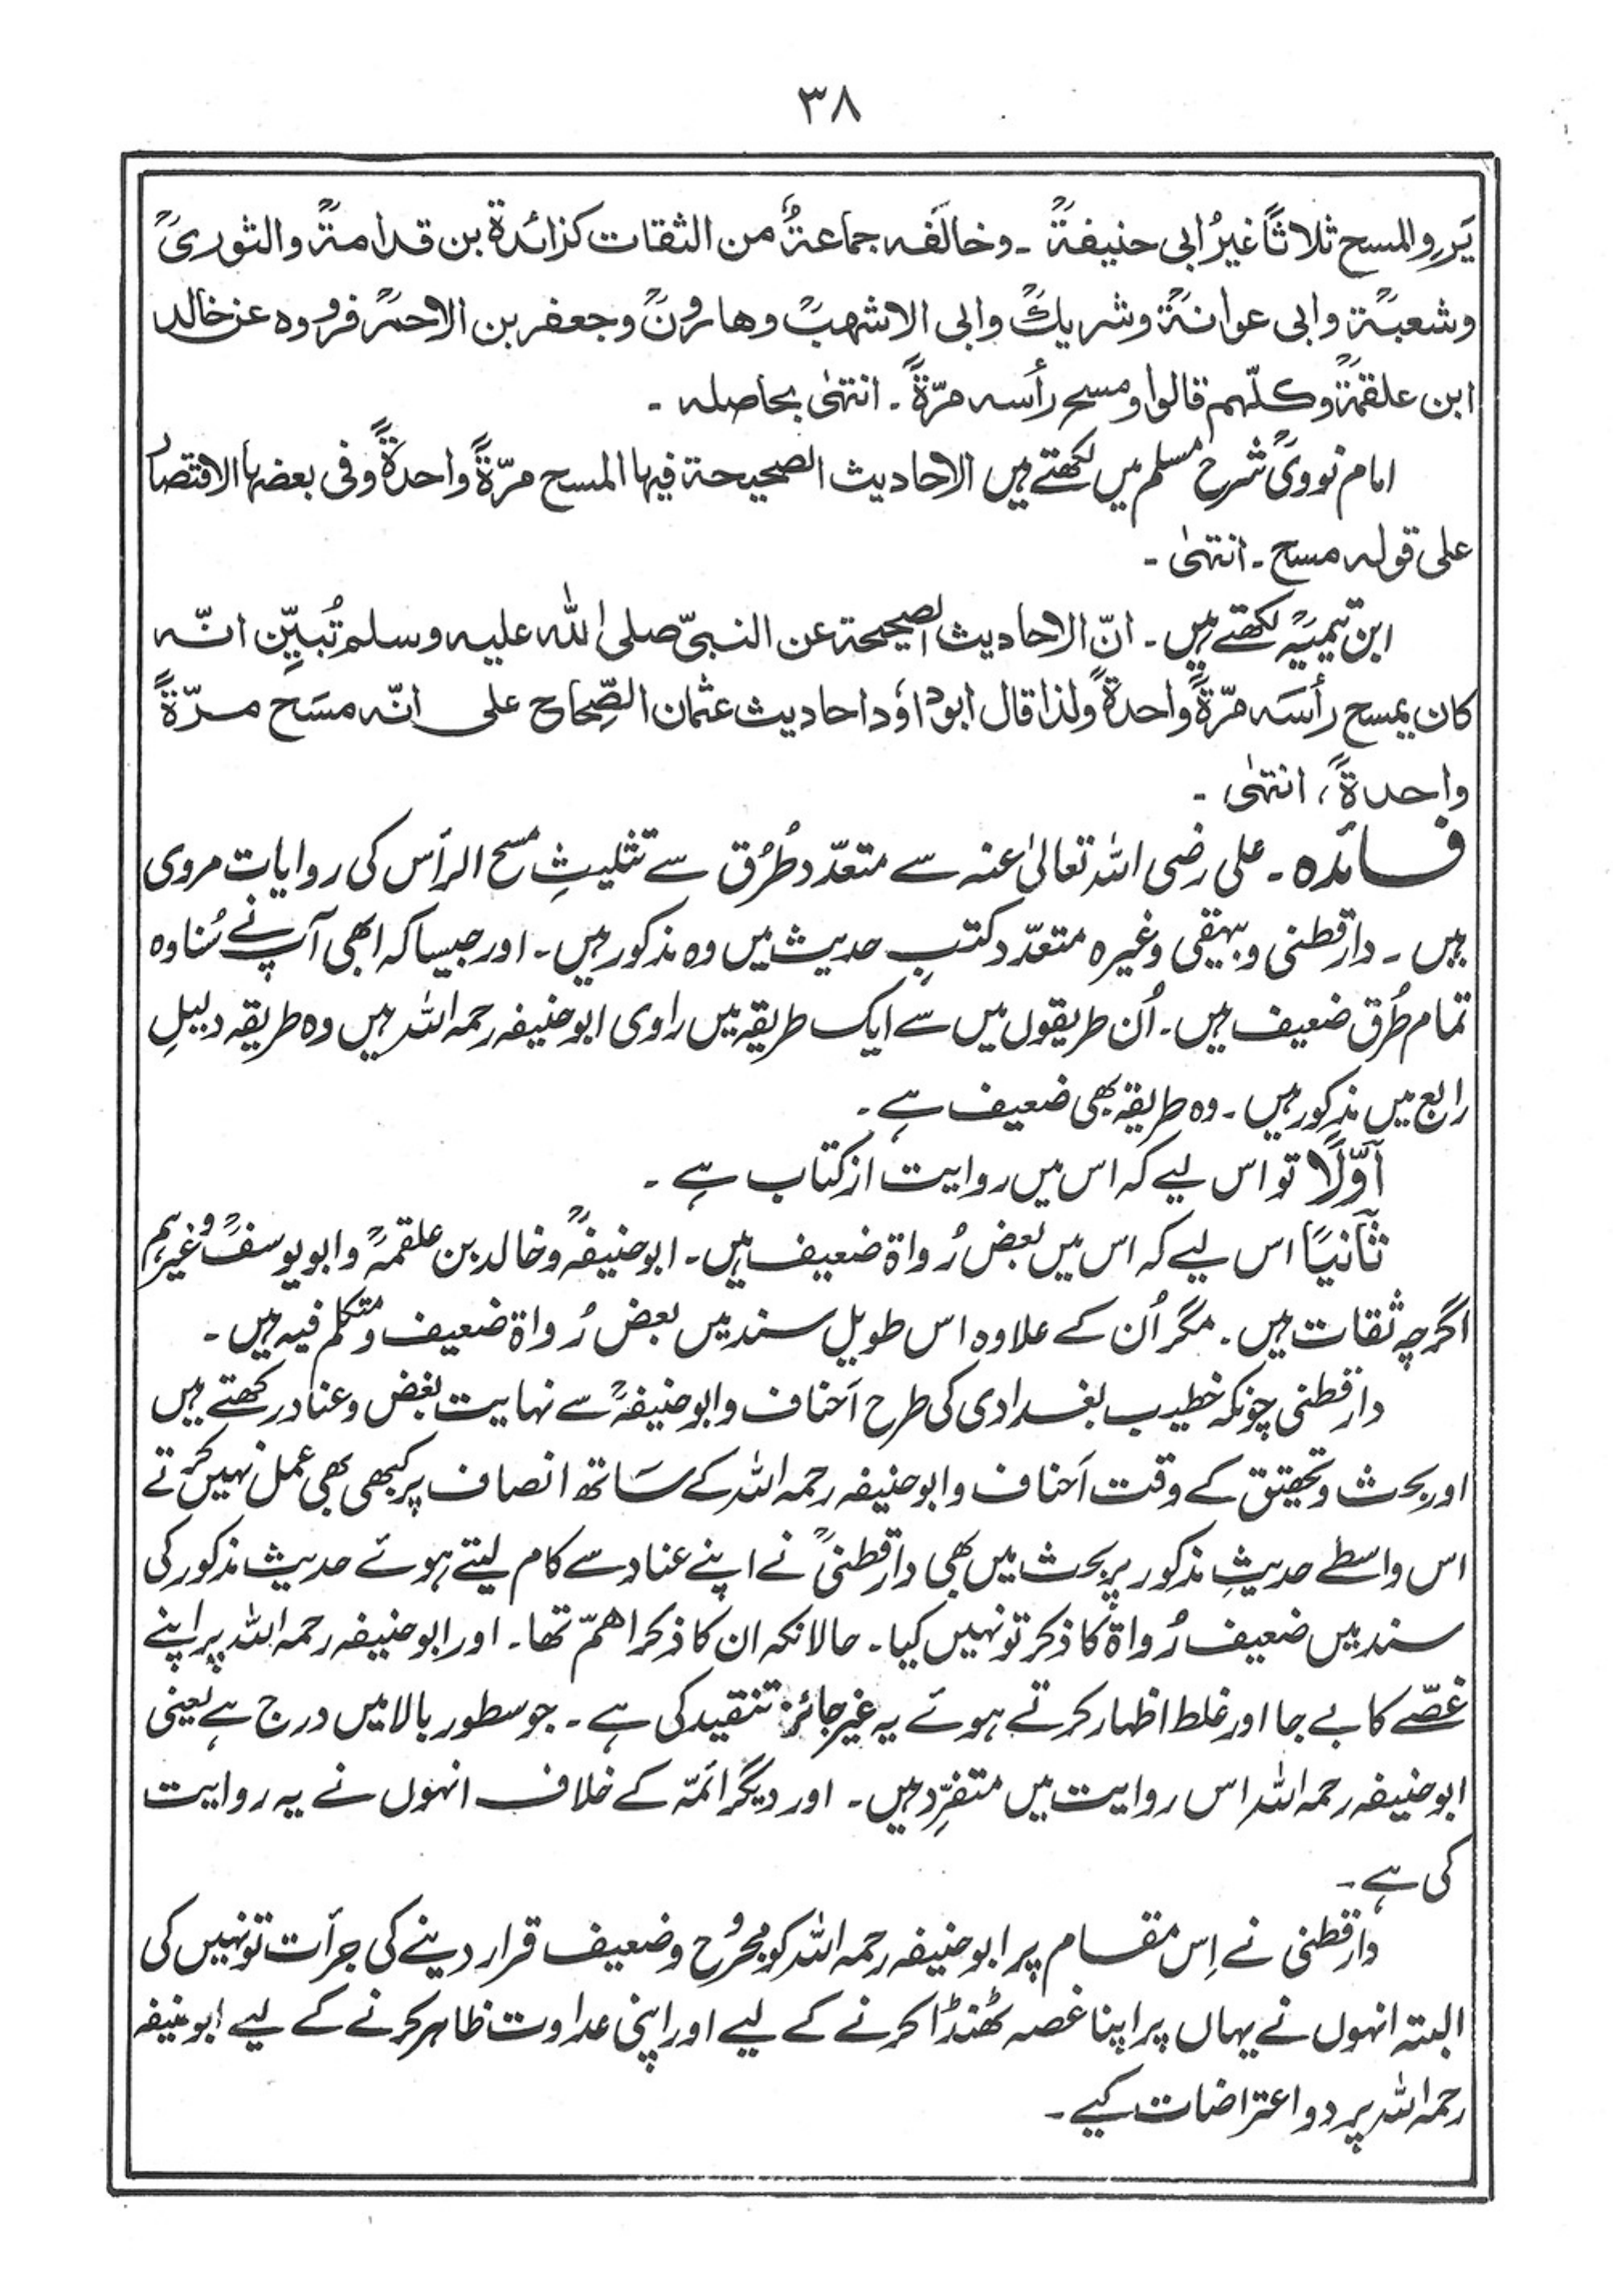 ۳۸
یَرِو المسح ثلاثاً غیرُ ابی حنیفۃؒ ۔ وخالَفہ جماعۃٌ من الثقات کزائدۃ بن قدامۃؒ والثوریؒ
وشعبۃؒ وابی عوانۃؒ وشریکؒ وابی الاشہبؒ وہارونؒ وجعفر بن الاحمرؒ فرووہ عن خالد
ابن علقمۃؒ وکلّہم قالوا ومسح رأسہ مرّۃً ۔ انتہٰی بحاصلہ ۔
امام نوویؒ شرح مسلم میں لکھتے ہیں الاحادیث الصحیحۃ فیہا المسح مرّۃً واحدۃً وفی بعضہا الاقتصار
علی قولہ مسح ۔ انتہٰی ۔
ابن تیمیہؒ لکھتے ہیں ۔ انّ الاحادیث الصحیحۃ عن النبیّ صلی اللہ علیہ وسلم تُبیِّن انّہ
کان یمسح رأسَہ مرّۃً واحدۃً ولذا قال ابوداؤد احادیث عثمان الصِّحاح علی انّہ مسَح مرّۃً
واحدۃً، انتہٰی ۔
فائدہ ۔ علی رضی اللہ تعالیٰ عنہ سے متعدّد طُرُق سے تثلیثِ مسح الرأس کی روایات مروی
ہیں ۔ دارقطنی و بیہقی وغیرہ متعدّد کتبِ حدیث میں وہ مذکور ہیں ۔ اور جیسا کہ ابھی آپ نے سُنا وہ
تمام طُرُق ضعیف ہیں ۔ اُن طریقوں میں سے ایک طریقہ میں راوی ابوحنیفہ رحمہ اللہ ہیں وہ طریقہ دلیلِ
رابع میں مذکور ہیں ۔ وہ طریقہ بھی ضعیف ہے ۔
اَوّلاً تو اس لیے کہ اس میں روایت از کتاب ہے ۔
ثانیًا اس لیے کہ اس میں بعض رُواۃ ضعیف ہیں ۔ ابوحنیفہؒ و خالد بن علقمہؒ و ابویوسفؒ وغیرہم
اگرچہ ثقات ہیں ۔ مگر اُن کے علاوہ اس طویل سند میں بعض رُواۃ ضعیف و متکلم فیہ ہیں ۔
دارقطنی چونکہ خطیب بغدادی کی طرح اَحناف و ابوحنیفہؒ سے نہایت بغض و عناد رکھتے ہیں
اور بحث و تحقیق کے وقت اَحناف و ابوحنیفہ رحمہ اللہ کے ساتھ انصاف پر کبھی بھی عمل نہیں کرتے
اس واسطے حدیثِ مذکور پر بحث میں بھی دارقطنیؒ نے اپنے عناد سے کام لیتے ہوئے حدیث مذکور کی
سند میں ضعیف رُواۃ کا ذکر تو نہیں کیا ۔ حالانکہ ان کا ذکر اہمّ تھا ۔ اور ابوحنیفہ رحمہ اللہ پر اپنے
غصّے کا بے جا اور غلط اظہار کرتے ہوئے یہ غیر جائز تنقید کی ہے ۔ جو سطور بالا میں درج ہے یعنی
ابوحنیفہ رحمہ اللہ اس روایت میں متفرِّد ہیں ۔ اور دیگر ائمّہ کے خلاف انہوں نے یہ روایت
کی ہے ۔
دارقطنی نے اِس مقام پر ابوحنیفہ رحمہ اللہ کو مجروح و ضعیف قرار دینے کی جرأت تو نہیں کی
البتہ انہوں نے یہاں پر اپنا غصہ ٹھنڈا کرنے کے لیے اور اپنی عداوت ظاہر کرنے کے لیے ابوحنیفہ
رحمہ اللہ پر دو اعتراضات کیے ۔